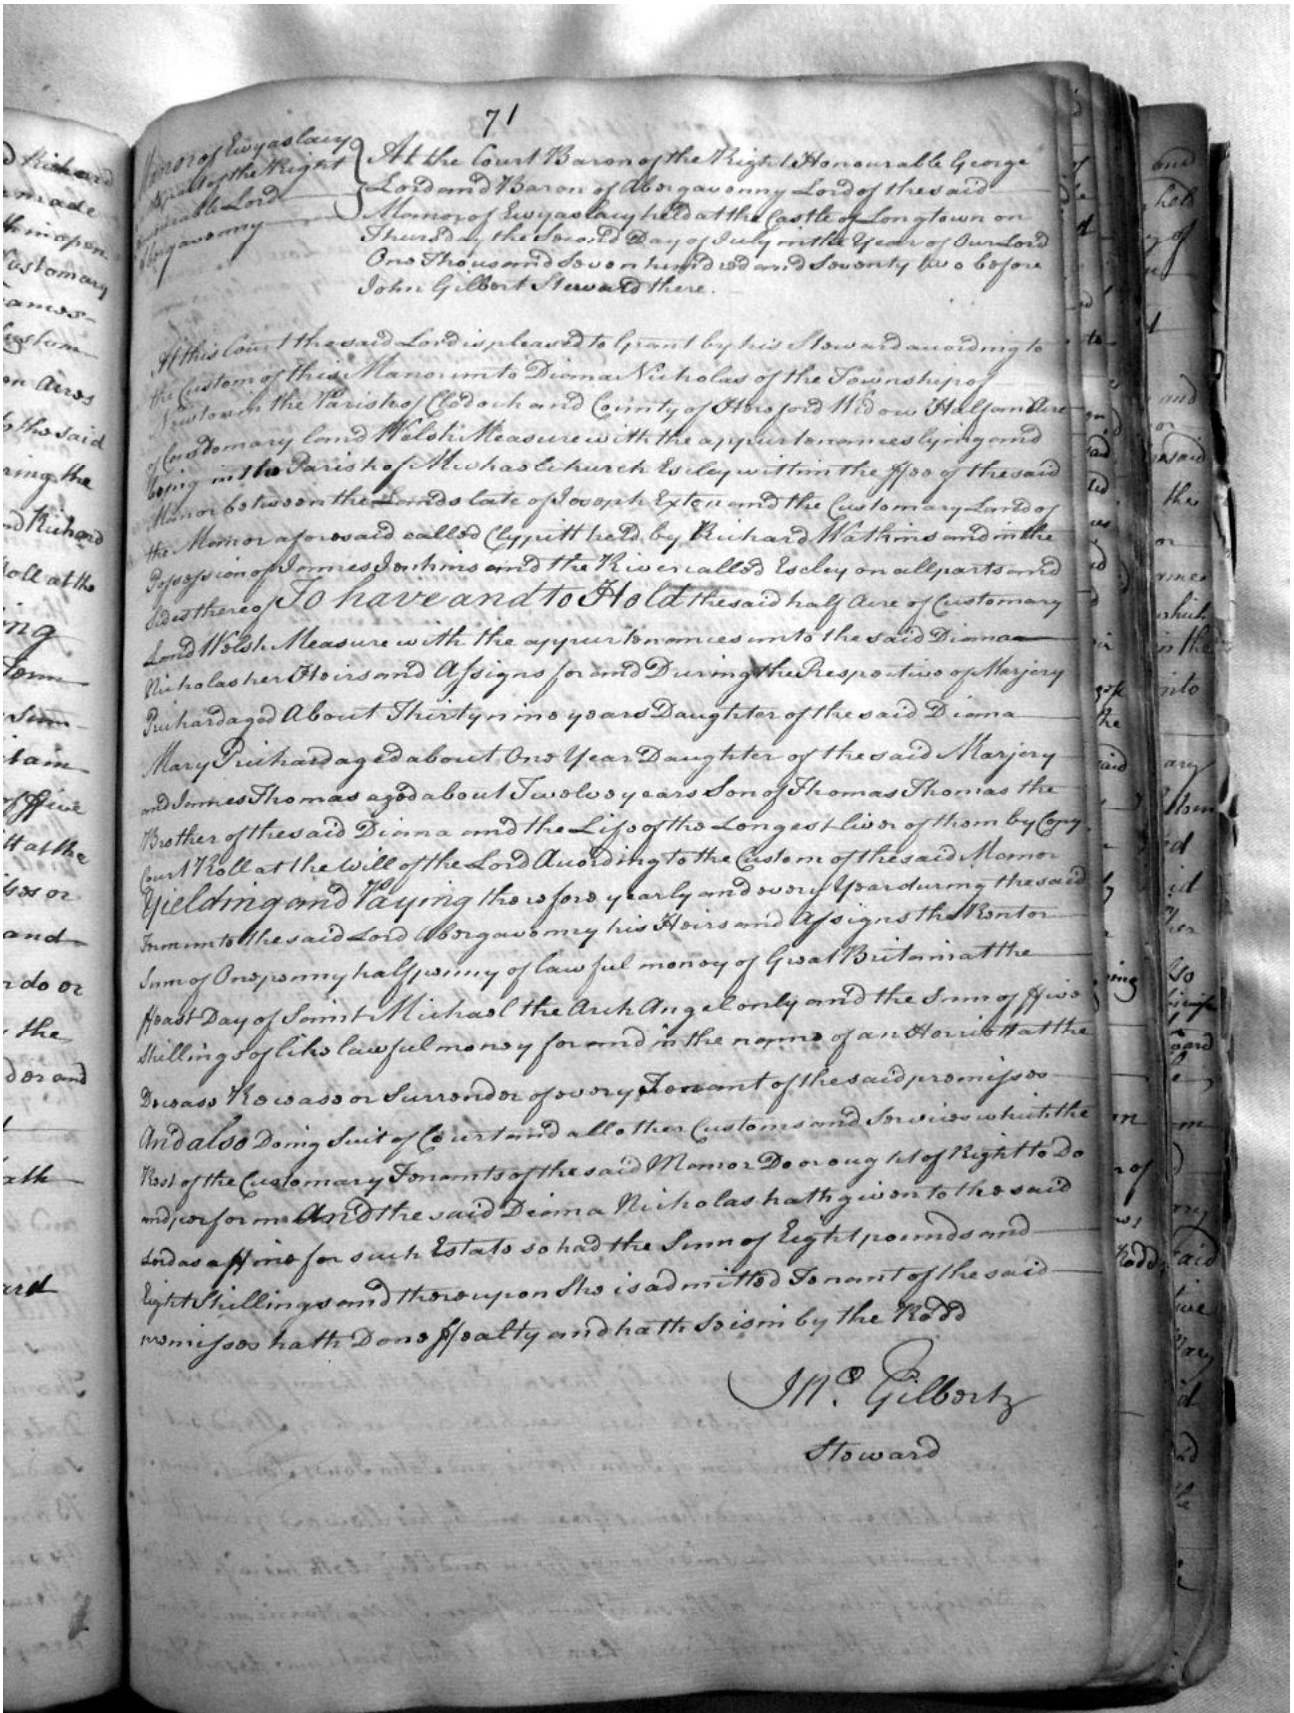 71
Manor of Ewyaslacy
part of the Right
Honourable Lord
Abergavenny
At the Court Baron of the Right Honourable George
Lord and Baron of Abergavenny Lord of the said
Manor of Ewyaslacy held at the Castle of Longtown on
Thursday the Second Day of July in the Year of Our Lord
One Thousand Seven hundred and Seventy two before
John Gilbert Steward there.
At this Court the said Lord is pleased to Grant by his Steward according to
the Custom of this Manor unto Diana Nicholas of the Township of
Newton in the Parish of Clodock and County of Hereford Widow Half an Acre
of Customary land Welsh Measure with the appurtenances lying and
being in the Parish of Michaelchurch Escley within the ffee of the said
Manor between the Lands late of Joseph Exton and the Customary Land of
the Manor aforesaid called Clypitt held by Richard Watkins and in the
Possession of James Jenkins and the River called Escley on all parts and
Sides thereof To have and to Hold the said half Acre of Customary
Land Welsh Measure with the appurtenances unto the said Diana
Nicholas her Heirs and Assigns for and During the Respective of Marjery
Prichard aged About Thirty nine years Daughter of the said Diana
Mary Prichard aged about One Year Daughter of the said Marjery
and James Thomas aged about Twelve years Son of Thomas Thomas the
Brother of the said Diana and the Life of the Longest liver of them by Copy
Court Roll at the Will of the Lord According to the Custom of the said Manor
Yielding and Paying therefore yearly and every Year during the said
Term unto the said Lord Abergavenny his Heirs and Assigns the Rent or
Sum of One penny half penny of lawful money of Great Britain at the
ffeast Day of Saint Michael the Arch Angel only and the Sum of ffive
Shillings of like lawful money for and in the name of an Herriott at the
Decease Rewase or Surrender of every Tenant of the said premisses
And also Doing Suit of Court and all other Customs and Services which the
Rest of the Customary Tenants of the said Manor Do or ought of Right to Do
and performe And the said Diana Nicholas hath given to the said
Lord as a ffine for such Estate so had the Sum of Eight pounds and
Eight Shillings and thereupon She is admitted Tenant of the said
premisses hath Done ffealty and hath Seisin by the Rodd
Jno. Gilbert
Steward